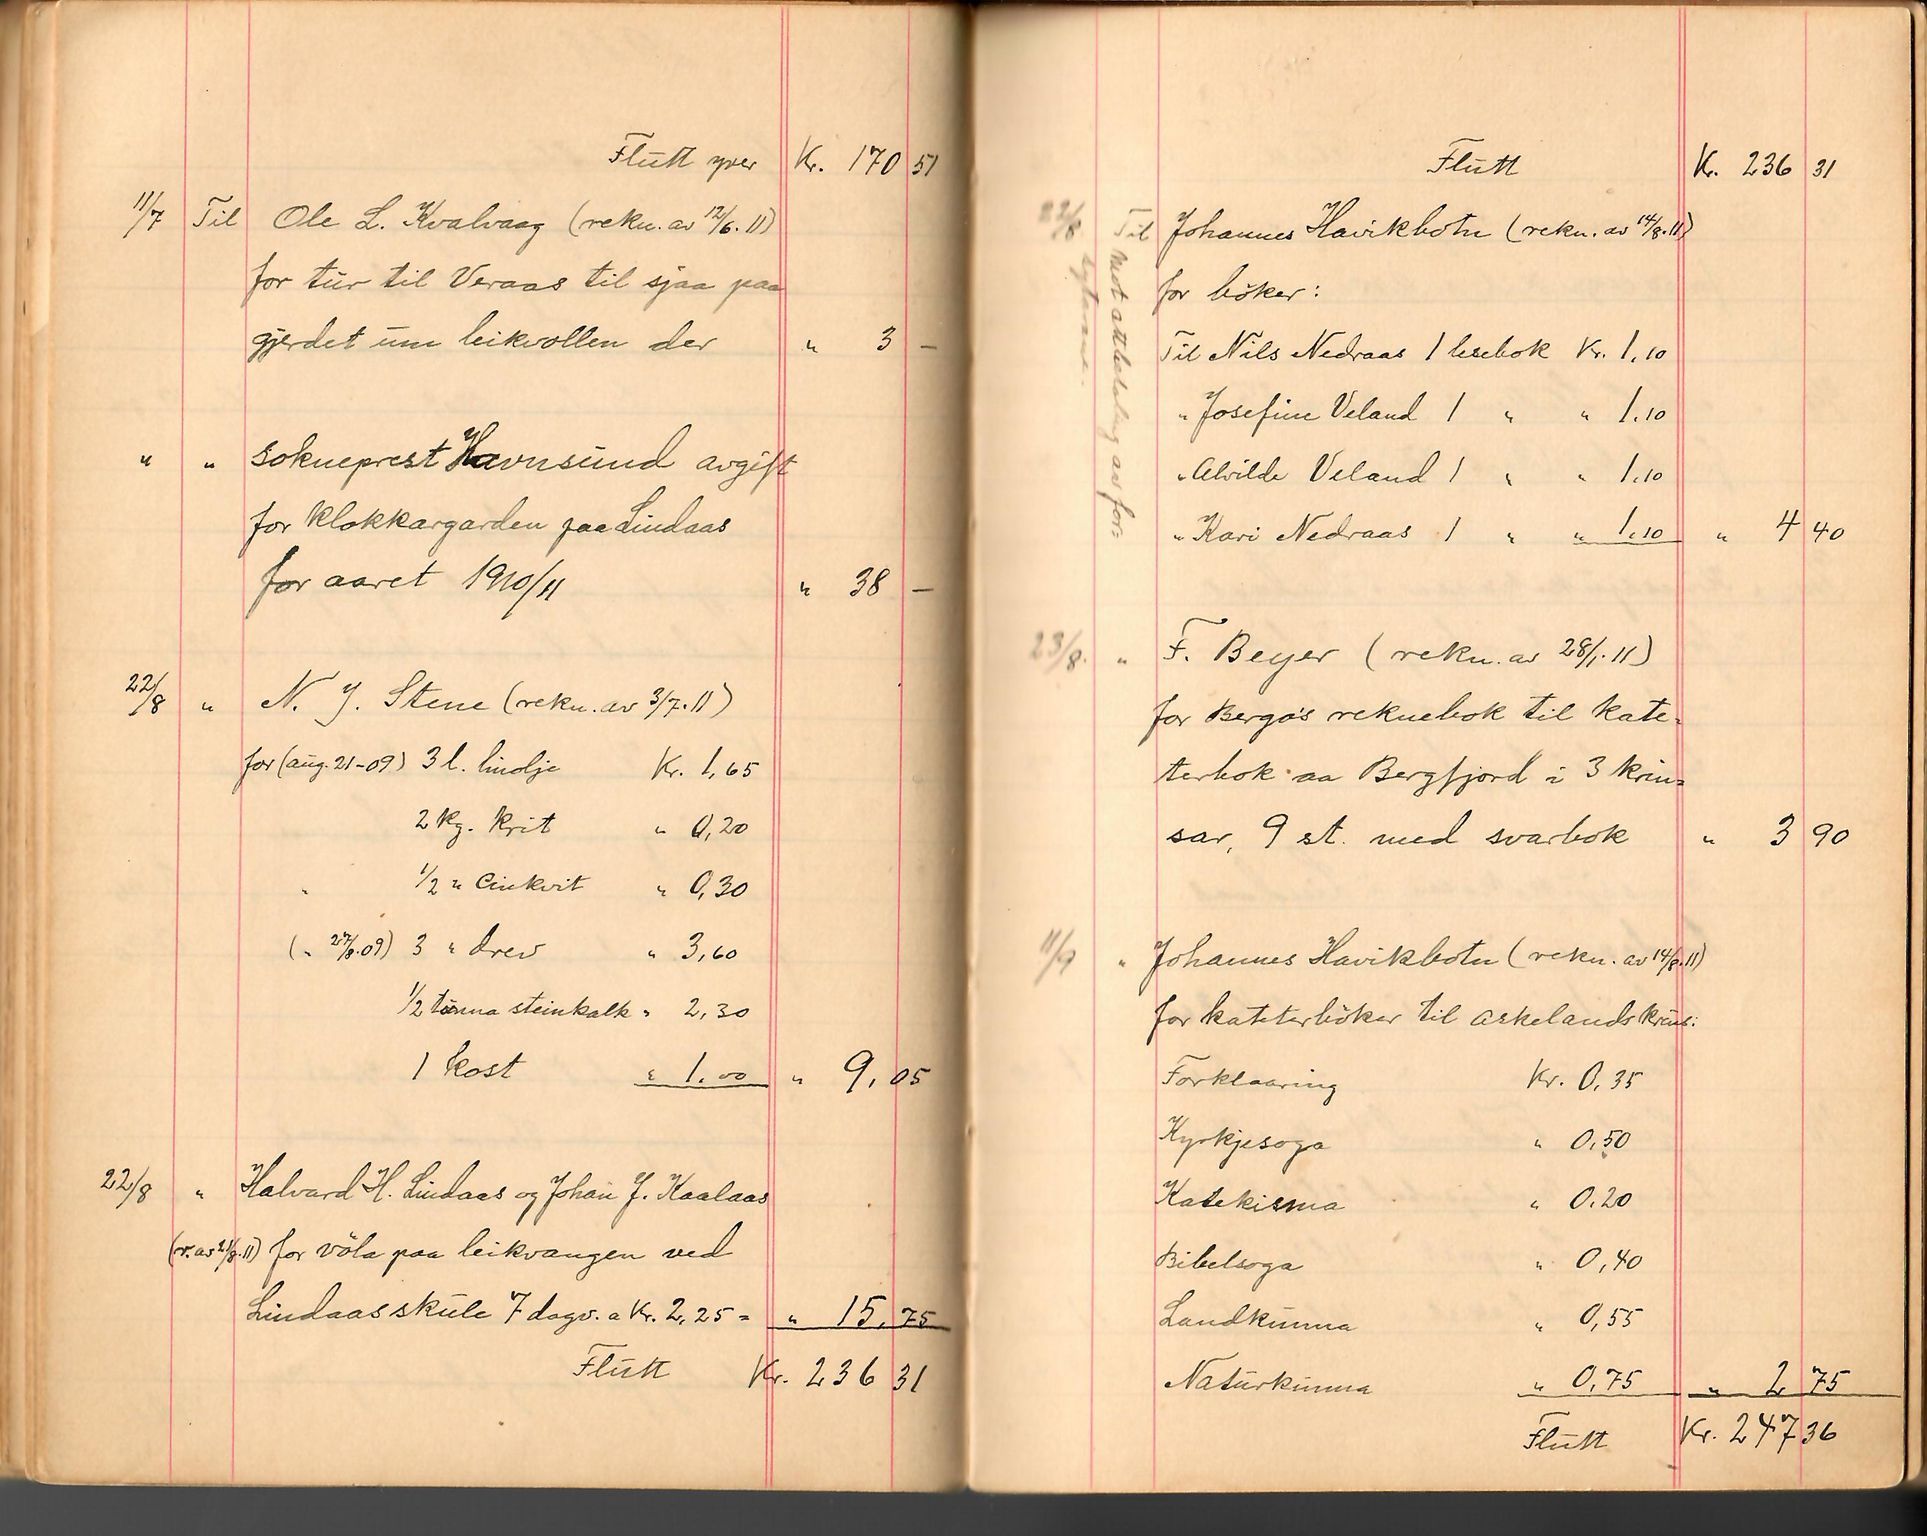 Flutt yver Kr. 170 51
11/7 Til Ole L. Kvalvaag (rekn. av 12/6. 11)
for tur til Veraas til sjaa paa
gjerdet um leikvollen der " 3 –
" " sokneprest Havnsund avgift
for klokkargarden paa Lindaas
for aaret 1910/11 " 38 –
22/8 " N. J. Stene (rekn. av 3/7. 11)
for (aug. 21-09) 3 l. linolje Kr. 1,65
2 kg. krit " 0,20
1/2 " Cinkvit " 0,30
(" 27/8.09) 3 " drev " 3,60
1/2 tönna steinkalk " 2,30
1 kost " 1.00 " 9,05
22/8 " Halvard H. Lindaas og Johan J. Kaalaas
(r. av 21/8. 11) for völa paa leikvangen ved
Lindaas skule 7 dagv. a Kr. 2,25 = " 15,75
Flutt Kr. 236 31
Flutt Kr. 236 31
22/8 Til Johannes Havikbotn (rekn. av 14/8. 11)
for böker:
Til Nils Nedraas 1 lesebok Kr. 1,10
" Josefine Veland 1 " " 1.10
" Alvilde Veland 1 " " 1.10
" Kari Nedraas 1 " " 1.10 " 4 40
Mot attbetaling av for=
sytarane.
23/8. " F. Beyer (rekn. av 28/1. 11)
for Bergo's reknebok til kate=
terbok aa Bergfjord i 3 krin=
sar, 9 st. med svarbok " 3 90
11/9 " Johannes Havikbotn (rekn. av 14/8. 11)
for kateterböker til Askelands krins:
Forklaaring Kr. 0,35
Kyrkjesoga " 0,50
Katekisma " 0.20
Bibelsoga " 0,40
Landkunna " 0,55
Naturkunna " 0,75 " 2 75
Flutt Kr. 247 36